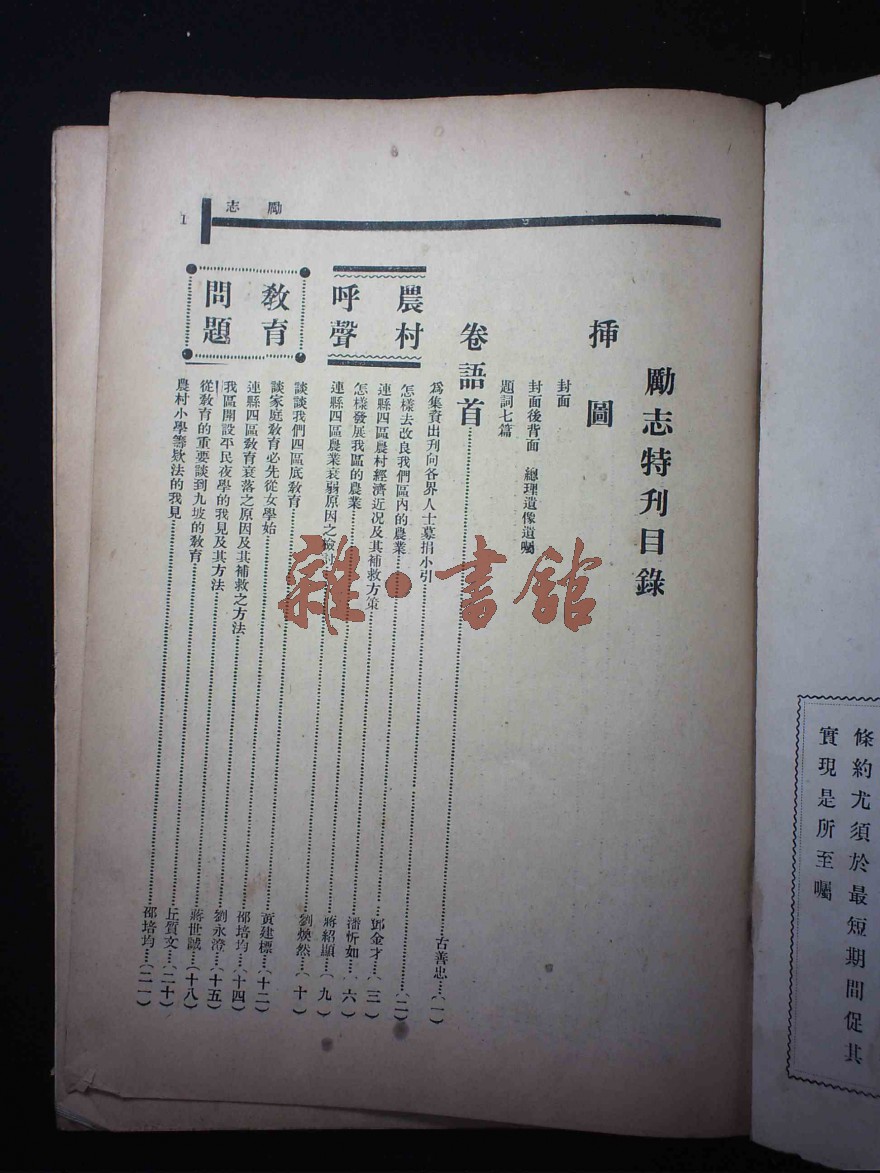 勵志
1
勵志特刊目錄
插圖
封面
封面後背面 總理遺像遺囑
題詞七篇
卷語首……古善忠…(一)
為集資出刊向各界人士募捐小引……(二)
農村呼聲
怎樣去改良我們區內的農業……鄧金才…(三)
連縣四區農村經濟近況及其補救方策……潘忻如…(六)
怎樣發展我區的農業……蔣紹顯…(九)
連縣四區農業衰弱原因之檢討……劉煥然…(十)
教育問題
談談我們四區底教育……黃建標…(十二)
談家庭教育必先從女學始……邵培均…(十四)
連縣四區教育衰落之原因及其補救之方法……劉永澄…(十五)
我區開設平民夜學的我見及其方法……蔣世誠…(十八)
從教育的重要談到九坡的教育……丘質文…(二十)
農村小學籌欵法的我見……邵培均…(二一)
條約尤須於最短期間促其
實現是所至囑
雜·書館